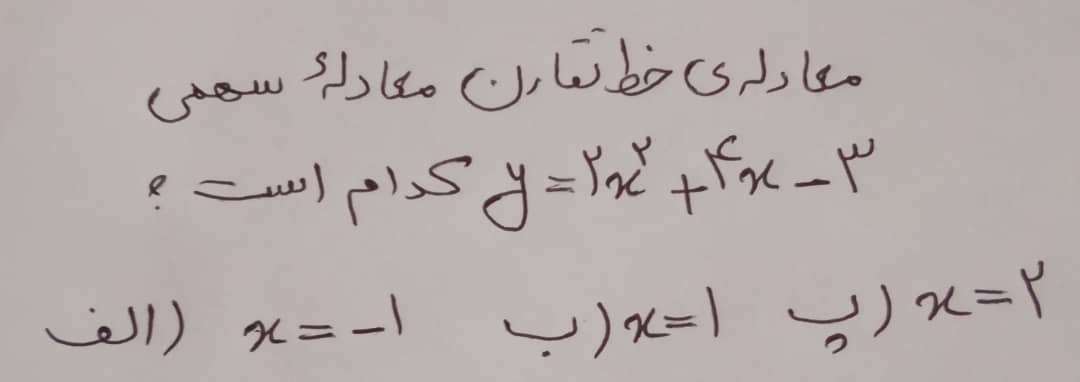 معادله‌ی خط تقارن معادلهٔ سهمی
y = ۲x² + ۴x - ۳ کدام است ؟
الف) x = -۱ ب) x = ۱ پ) x = ۲